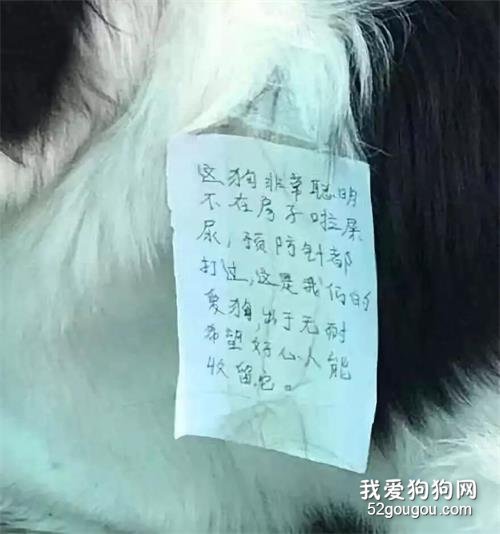 这狗非常聪明
不在房子啦屎
尿，预防针都
打过，这是我们的
爱狗，出于无耐
希望好心人能
收留它。
我爱狗狗网
52gougou.com